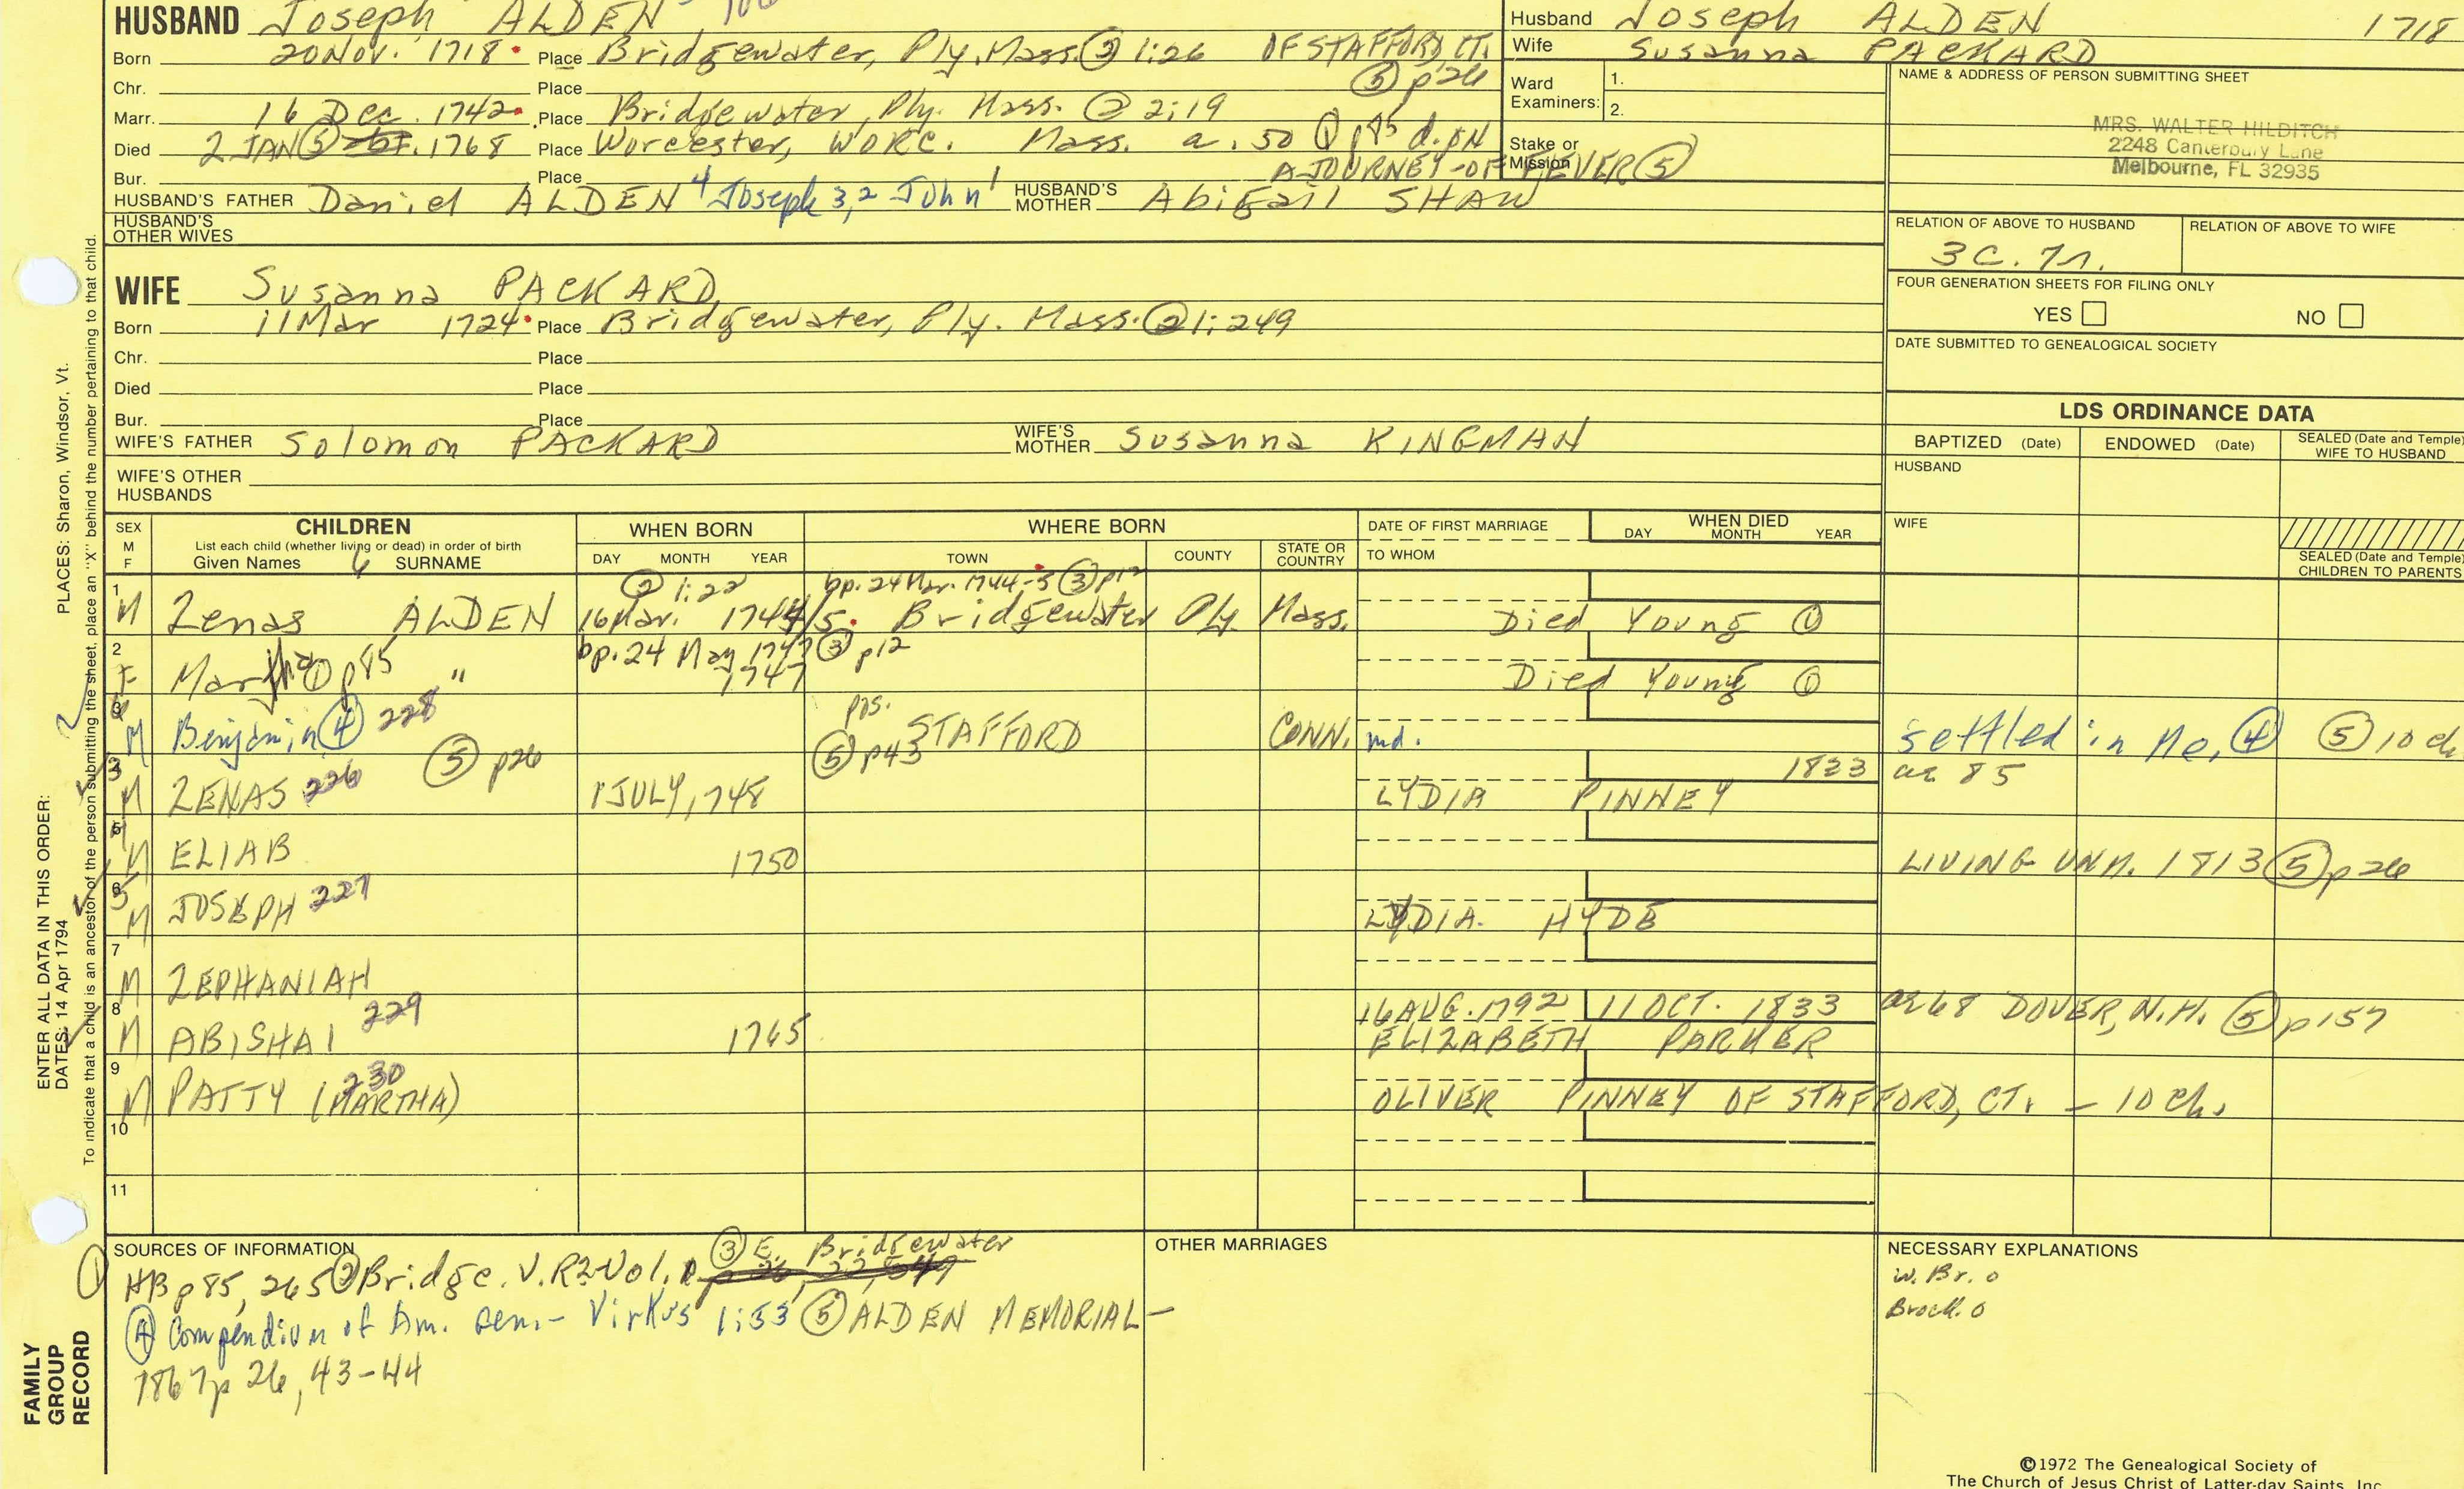 HUSBAND Joseph ALDEN
Born 20 Nov. 1718 Place Bridgewater, Ply. Mass. ② 1:26 OF STAFFORD, CT.
⑤ p26
Chr. Place
Marr. 16 Dec. 1742 Place Bridgewater, Ply. Mass. ② 2:19
Died 2 JAN ⑤ 1768 Place Worcester, WORC. Mass. a. 50 ① p85 d. ON
A JOURNEY - OF FEVER ⑤
Bur. Place
HUSBAND'S FATHER Daniel ALDEN 4 Joseph 3,2 John 1 HUSBAND'S MOTHER Abigail SHAW
HUSBAND'S OTHER WIVES
WIFE Susanna PACKARD
Born 11 Mar 1724 Place Bridgewater, Ply. Mass. ② 1:249
Chr. Place
Died Place
Bur. Place
WIFE'S FATHER Solomon PACKARD WIFE'S MOTHER Susanna KINGMAN
WIFE'S OTHER HUSBANDS
Husband Joseph ALDEN 1718
Wife Susanna PACKARD
Ward Examiners: 1. 2.
Stake or Mission
NAME & ADDRESS OF PERSON SUBMITTING SHEET
MRS. WALTER HILDITCH
2248 Canterbury Lane
Melbourne, FL 32935
RELATION OF ABOVE TO HUSBAND RELATION OF ABOVE TO WIFE
3C. 7r.
FOUR GENERATION SHEETS FOR FILING ONLY
YES NO
DATE SUBMITTED TO GENEALOGICAL SOCIETY
LDS ORDINANCE DATA
BAPTIZED (Date) ENDOWED (Date) SEALED (Date and Temple) WIFE TO HUSBAND
HUSBAND
WIFE
SEALED (Date and Temple) CHILDREN TO PARENTS
SEX M F
CHILDREN
List each child (whether living or dead) in order of birth
Given Names SURNAME
WHEN BORN
DAY MONTH YEAR
WHERE BORN
TOWN COUNTY STATE OR COUNTRY
DATE OF FIRST MARRIAGE
TO WHOM
WHEN DIED
DAY MONTH YEAR
1 ② 1:22 bp. 24 Mar. 1744-5 ③ p12
M Zenas ALDEN 16 Mar. 1744/5 Bridgewater Ply Mass. Died Young ①
2 bp. 24 May 1747 ③ p12
F Martha ① p85 " 1747 Died Young ①
3 pos.
M Benjamin ④ 228 ⑤ p43 STAFFORD CONN. md. settled in Me. ④ ⑤ 10 ch
⑤ p26 1833 ae 85
M ZENAS 226 1 JULY, 1748 LYDIA PINNEY
5
M ELIAB 1750 LIVING UNM. 1813 ⑤ p26
6
M JOSEPH 227 LYDIA HYDE
7
M ZEPHANIAH
8 229 16 AUG. 1792 11 OCT. 1833 ae 68 DOVER, N.H. ⑤ p157
M ABISHAI 1765 ELIZABETH PARKER
9 230
M PATTY (MARTHA) OLIVER PINNEY OF STAFFORD, CT. - 10 ch.
10
11
SOURCES OF INFORMATION
① HB p85, 265 ② Bridge. V.R. 2 Vol. ③ E. Bridgewater
④ Compendium of Am. Gen. - Virkus 1:53 ⑤ ALDEN MEMORIAL -
1867 p 26, 43-44
OTHER MARRIAGES
NECESSARY EXPLANATIONS
W. Br. o
Brock. o
©1972 The Genealogical Society of
The Church of Jesus Christ of Latter-day Saints, Inc.
ENTER ALL DATA IN THIS ORDER:
DATES: 14 Apr 1794 PLACES: Sharon, Windsor, Vt.
To indicate that a child is an ancestor of the person submitting the sheet, place an "X" behind the number pertaining to that child.
FAMILY
GROUP
RECORD